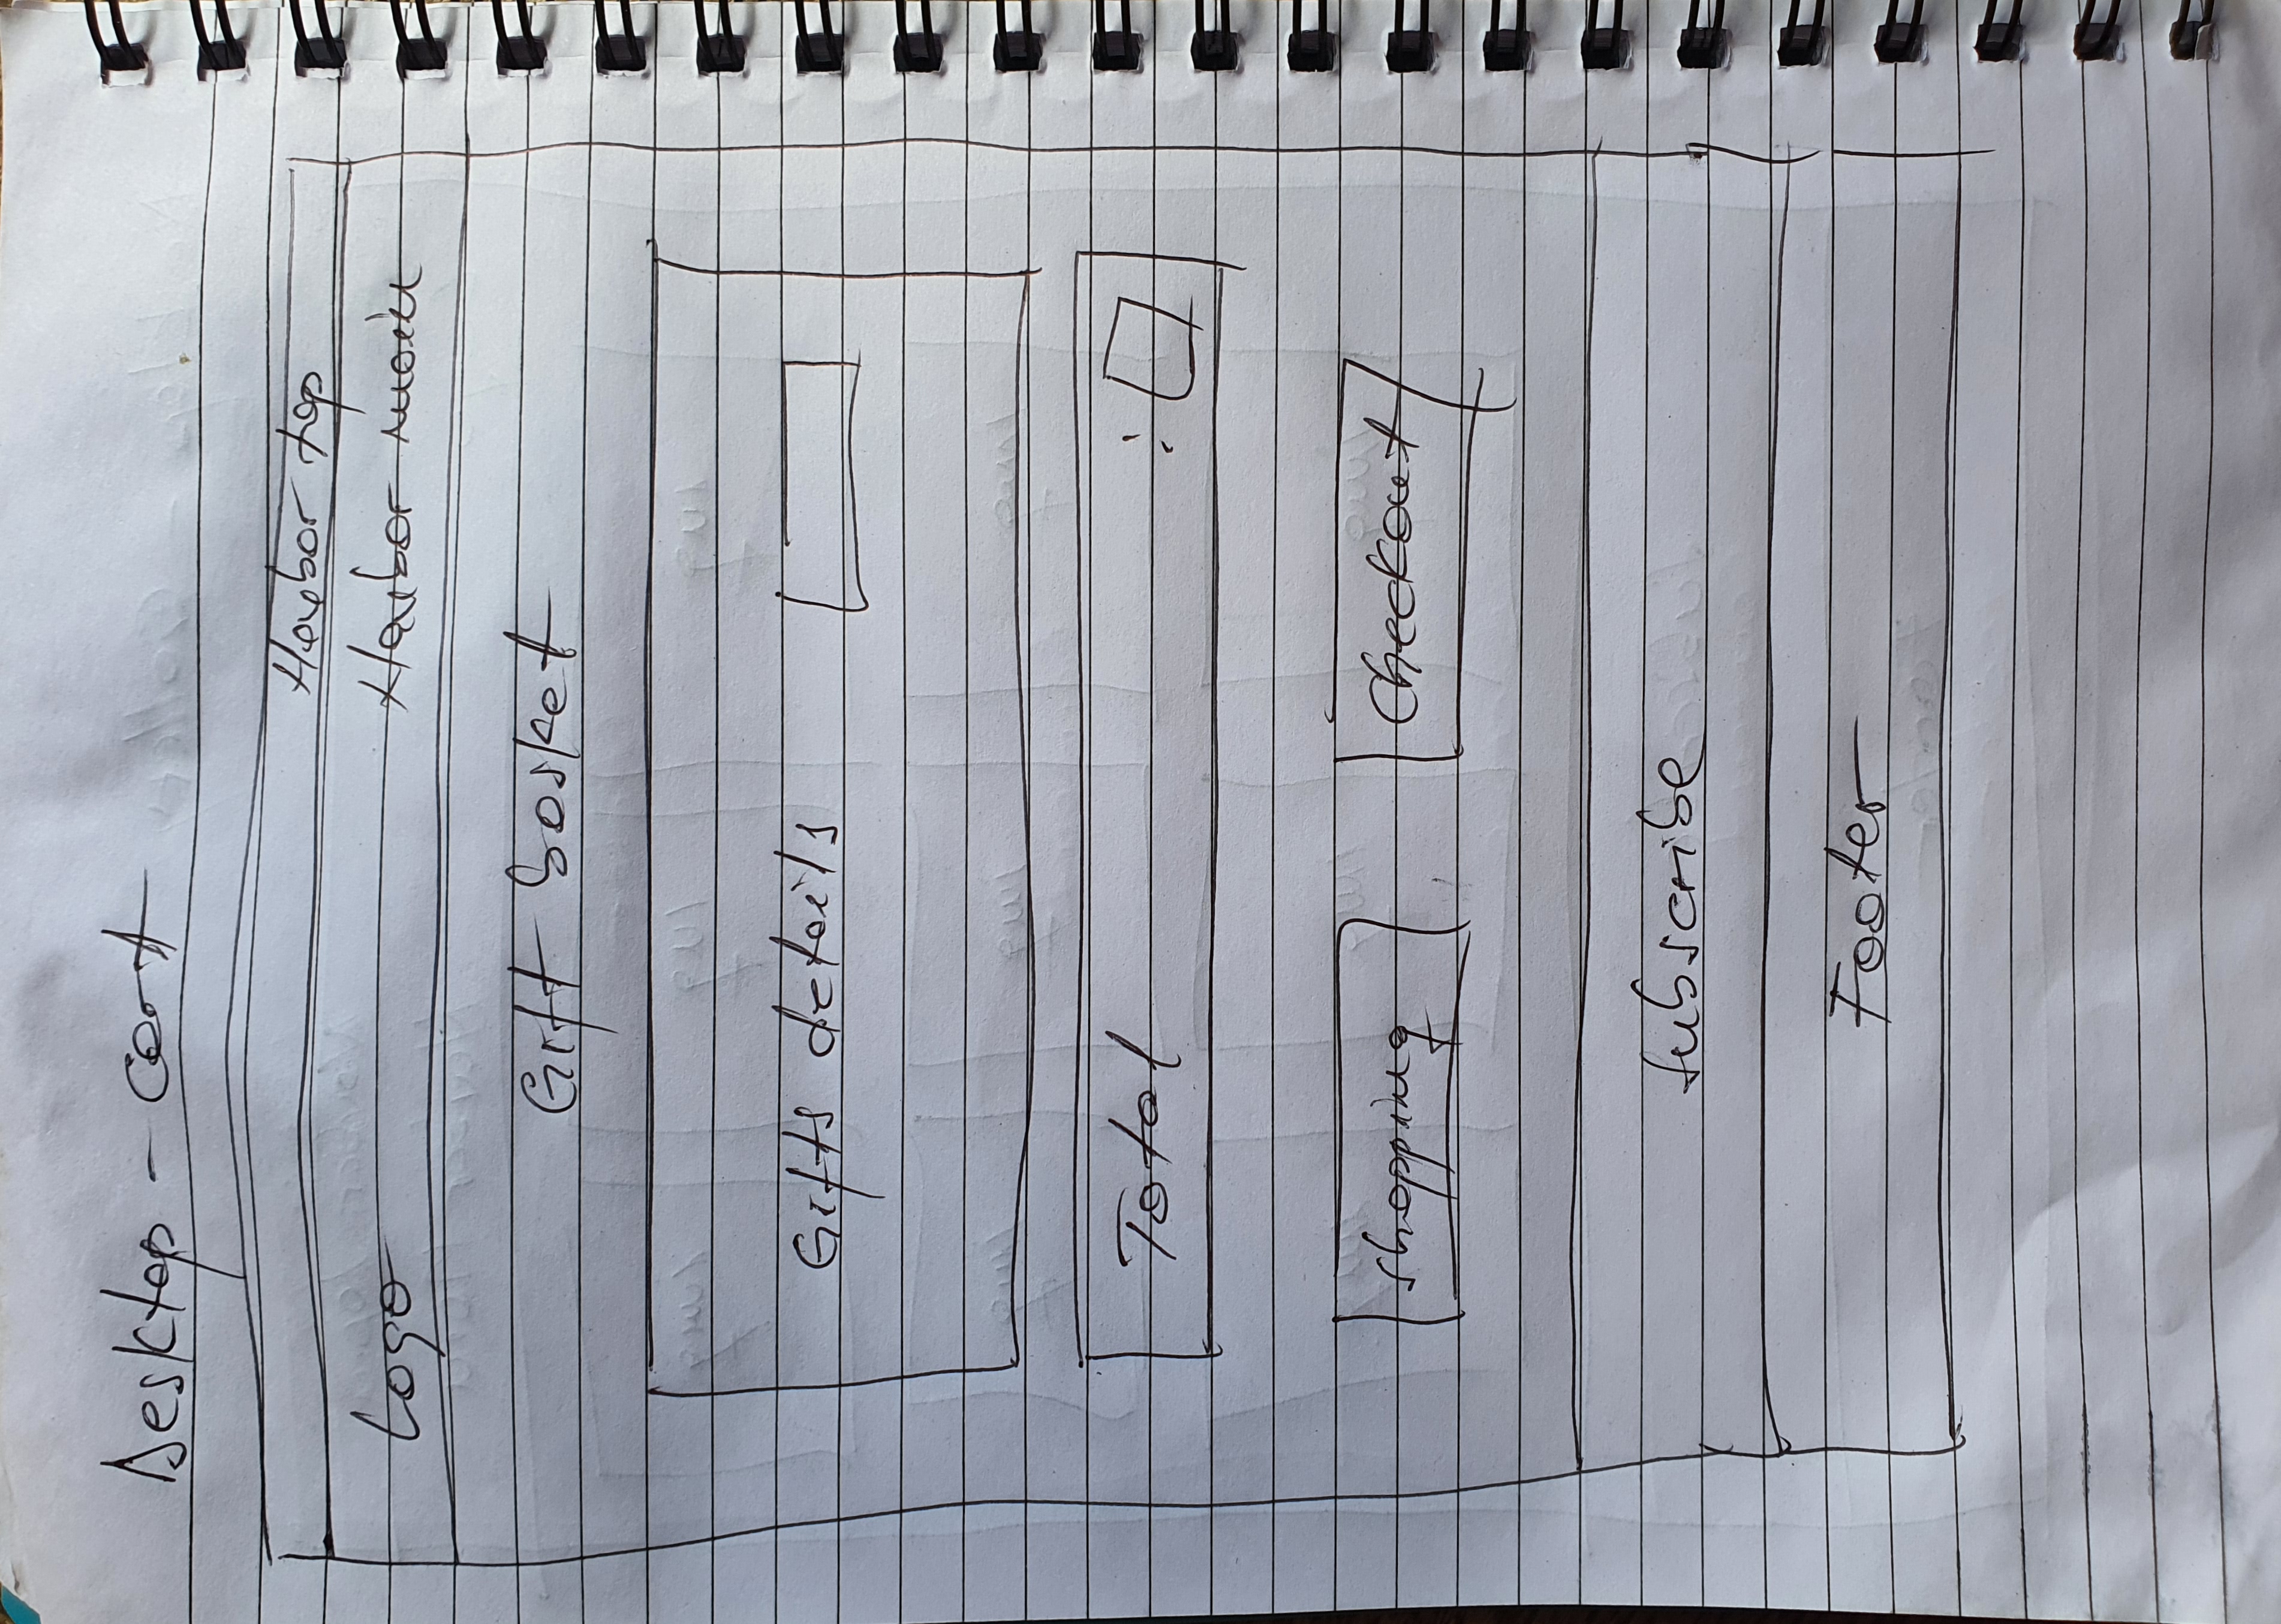 Desktop - cart
Navbar top
Logo Navbar main
Gift basket
Gifts details
Total :
shopping Checkout
subscribe
Footer